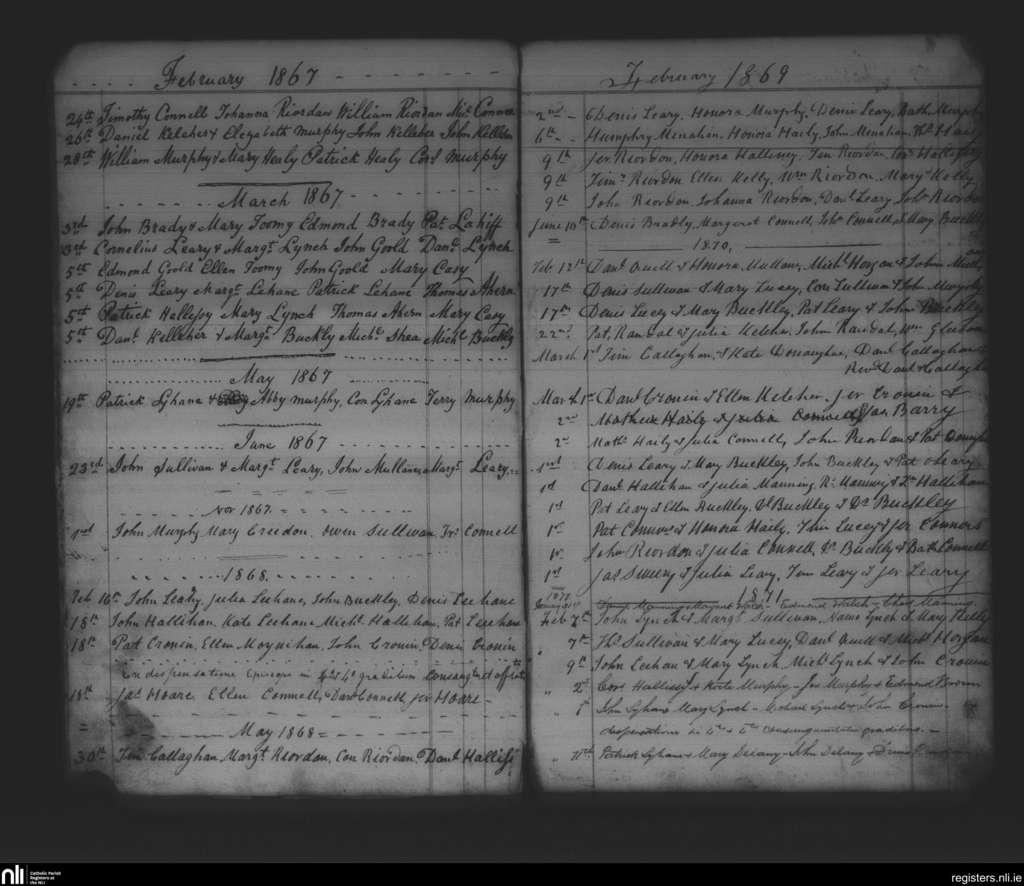 February 1867
24th Timothy Connell Johanna Riordan William Riordan Mich Connell
26th Daniel Kelehert Elezabeth Murphy John Kelleher John Kelleher
28th William Murphy & Mary Healy Patrick Healy Cors Murphy
March 1867
3rd John Brady & Mary Toomy Edmond Brady Pat Lahiff
3rd Cornelius Leary & Margt Lynch John Goold Danl Lynch
5th Edmond Goold Ellen Toomy John Goold Mary Casy
5th Denis Leary Margt Lehane Patrick Lehane Thomas Ahern
5th Patrick Hallesy Mary Lynch Thomas Ahern Mary Casy
5th Danl Kelleher & Margt Buckly Michl Shea Michl Buckly
May 1867
19th Patrick Lyhane & Abby Murphy, Con Lyhane Terry Murphy
June 1867
23rd John Sullivan & Margt Leary, John Mullins Margt Leary
Nov 1867
1st John Murphy Mary Creedon. Owen Sullivan Jr Connell
1868
Feb 16th John Leahy, Julia Leehane, John Buckley, Denis Leehane
18th John Hallihan, Kate Leehane Michl Hallihan, Pat Leehane
18th Pat Cronin, Ellen Moynihan, John Cronin, Denis Cronin
Cum dispensatione in
18th Jas Hoare Ellen Connell, Danl Connell Jer Hoare
May 1868
30th Tim Callaghan Margt Riordan, Con Riordan & Danl Hallisy
February 1869
2nd Denis Leary, Honora Murphy, Denis Leary, Bath Murphy
6th Humphry Menahan, Honora Haily, John Menahan,
9th Jer Riordon, Honora Hallissey, Tim Riordan,
9th Timy Riordon Ellen Kelly, Wm Riordon, Mary Kelly
9th John Riordon Johanna Riordon, Danl Leary Johs Riordon
June 10th Denis Bradly, Margaret Connell, John Connell & Mary Buckley
1870.
Feb 12th Danl & Honora Mullane, Michl Horgan & John
17th Denis Sullivan & Mary Lucey, Con Sullivan & John Murphy
17th Denis Lucey & Mary Buckley, Pat Leary & John Buckley
22nd Pat, Randal & Julia Kelehe, John Randal, Wm
March 1st Tim Callaghan, & Kate Donoughue, Danl Callaghan &
Revd Danl Callaghan
Mar 1st Danl Cronin & Ellen Keleher, Jer Cronin &
Jas Barry
2nd Mathew Haily & Julia Connell
2nd Maths Haily & Julia Connell, John Riordan & Pat
1st Denis Leary & Mary Buckley, John Buckley & Pat O Leary
1st Danl Hallihan & Julia Manning, Rd Manning & Hallihan
1st Pat Leary & Ellen Buckley, Buckley & Buckley
1st Pat Connors & Honora Haily, Thim Lucey & Jer Connors
1st John Riordon & Julia Connell, Buckley & Bath Connell
1st Jas Sweeny & Julia Leary, Tim Leary & Jer Leary
1871
1871
Feb 7th John Lynch & Margt Sullivan, Hans Lynch & Mary Kelly
7th Sullivan & Mary Lucey, Danl & Michl Horgan
9th John Leehan & Mary Lynch, Michl Lynch & John Cronin
2nd Cors Hallissey & Kate Murphy - Jas Murphy & Edmond
" John Lyhane Mary Lynch - Michael Lynch & John Cronin
dispensatione in 4th & 4th consanguinitatis gradibus. -
" 11th Patrick Lyhane & Mary Delany - John Delany &
nli
Catholic Parish
Registers at
the NLI
registers.nli.ie